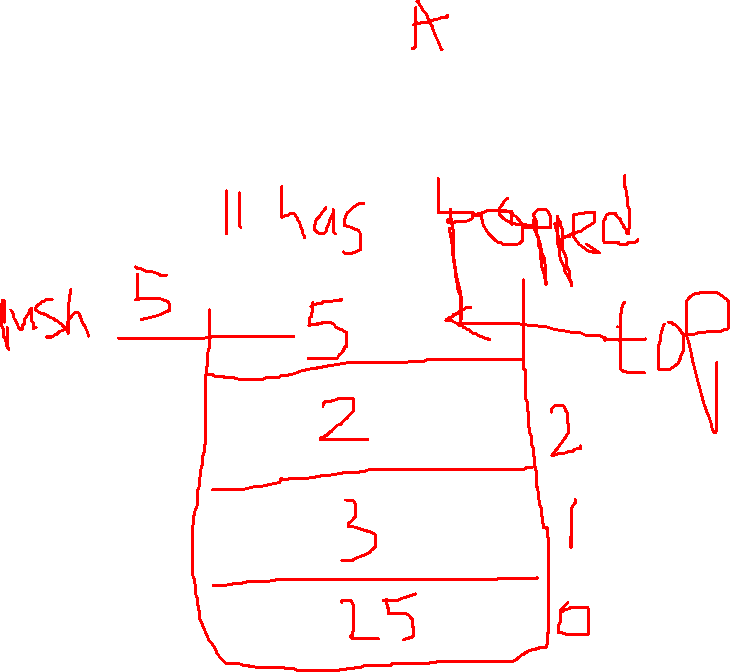 A
11 has popped
push 5
5 top
2 2
3 1
25 0